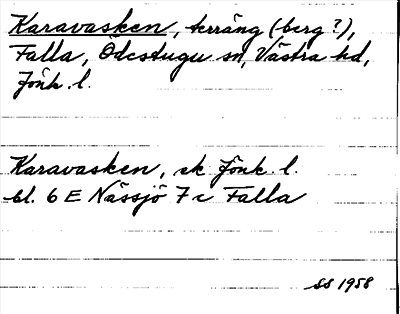 Karavasken, terräng (berg?),
Falla, Ödestugu sn, Västra hd,
Jönk. l.
Karavasken, ek Jönk. l.
bl. 6 E Nässjö 7 c Falla
SS 1958